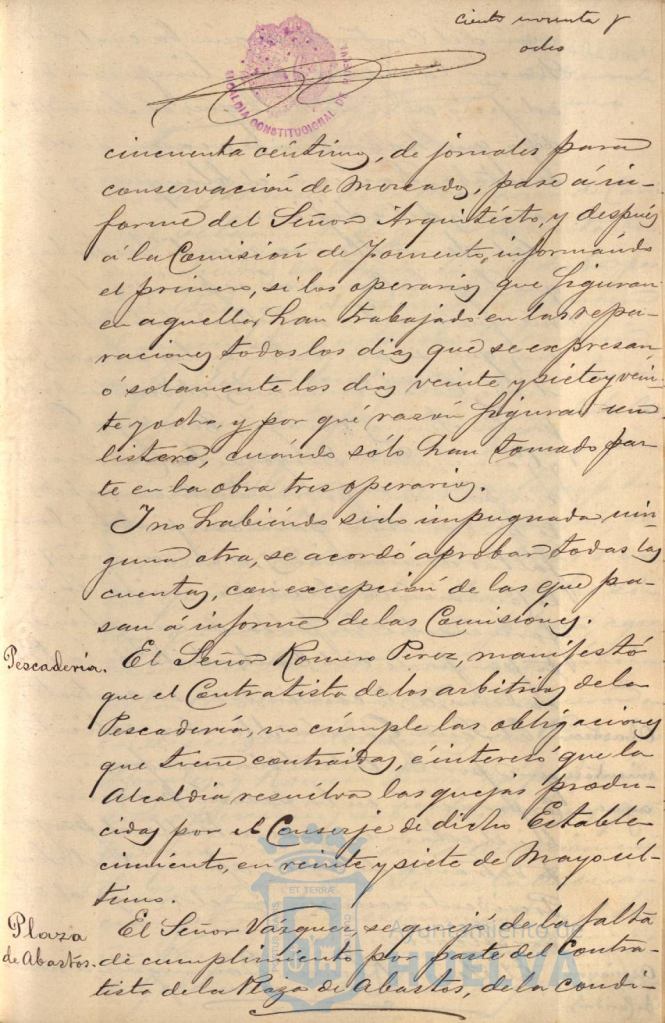 ciento noventa y
ocho
ALCALDIA CONSTITUCIONAL DE HUELVA
cincuenta céntimos, de jornales para
conservación de Mercados, pase á in-
forme del Señor Arquitécto, y después
á la Comisión de Fomento, informando
el primero, si los operarios que figuran
en aquellas, han trabajado en las repa-
raciones todos los dias que se expresan
ó solamente los dias veinte y siete y vein-
te y ocho, y por qué razón figura un
listero, cuándo sólo han tomado par-
te en la obra tres operarios.
Y no habiéndo sido impugnada nin-
guna otra, se acordó aprobar todas las
cuentas, con excepción de las que pa-
san á informe de las Comisiónes.
Pescadería.
El Señor Romero Perez, manifestó
que el Contratista de los arbitrios de la
Pescadería, no cúmple las obligaciones
que tiene contraidas, é interesó que la
Alcaldía resuelva las quejas produ-
cidas por el Conserje de dicho Estable-
cimiento, en veinte y siete de Mayo úl-
timo.
Plaza
de Abastos.
El Señor Vázquez, se quejó de la falta
de cumplimiento por parte del Contra-
tista de la Plaza de Abastos, de la condi-
ET TERRÆ
PORTUS MARIS
CUSTODIA
Ayuntamiento de
HUELVA